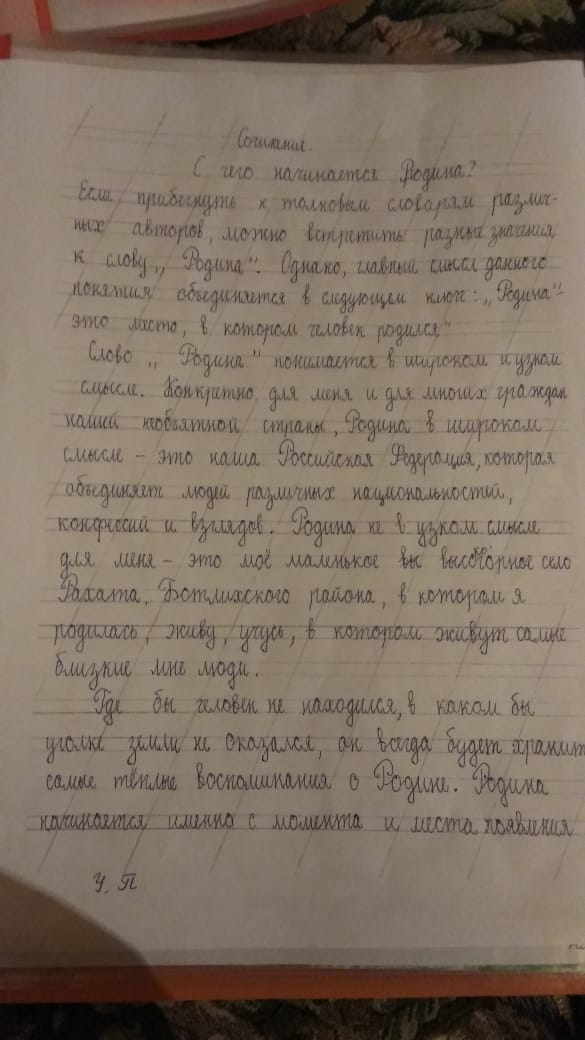 Сочинение.
С чего начинается Родина?
Если прибегнуть к толковым словарям различ-
ных авторов, можно встретить разные значения
к слову „ Родина". Однако, главный смысл данного
понятия объединяется в следующем ключе: „Родина"-
это место, в котором человек родился"
Слово „ Родина" понимается в широком и узком
смысле. Конкретно для меня и для многих граждан
нашей необъятной страны, Родина в широком
смысле - это наша Российская Федерация, которая
объединяет людей различных национальностей,
конфессий и взглядов. Родина не в узком смысле
для меня - это моё маленькое вы высокогорное село
Рахата, Ботлихского района, в котором я
родилась, живу, учусь, в котором живут самые
близкие мне люди.
Где бы человек не находился, в каком бы
уголке земли не оказался, он всегда будет хранить
самые тёплые воспоминания о Родине. Родина
начинается именно с момента и места появления
У. П